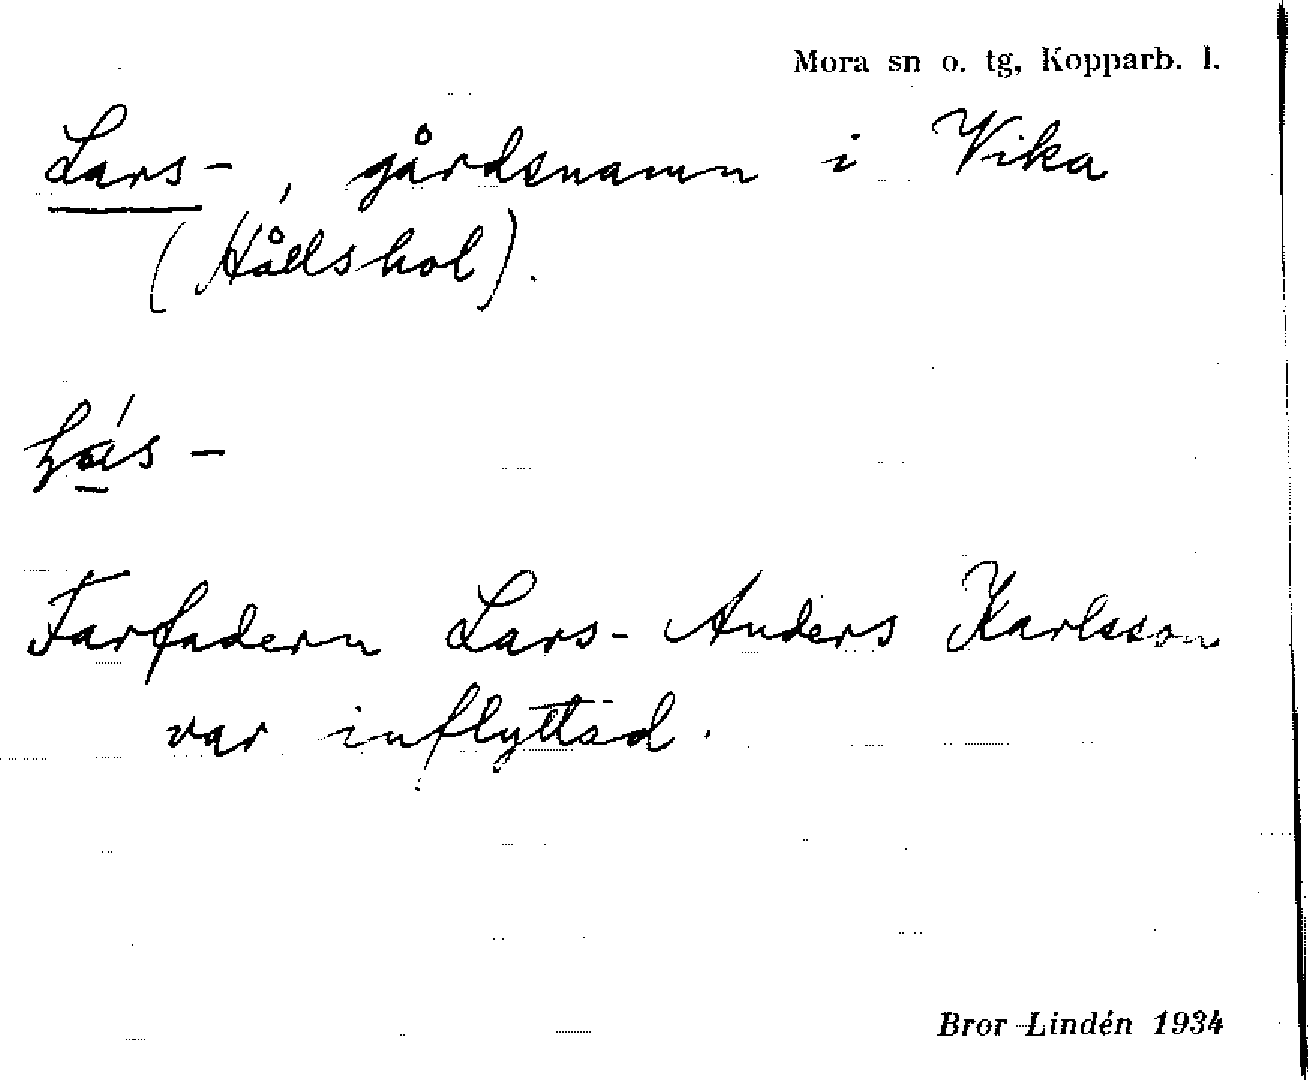 Mora sn o. tg, Kopparb. l.
Lars-, gårdsnamn i Vika
(Hållshol).
Farfadern Lars-Anders Karlsson
var inflyttad.
Bror Lindén 1934